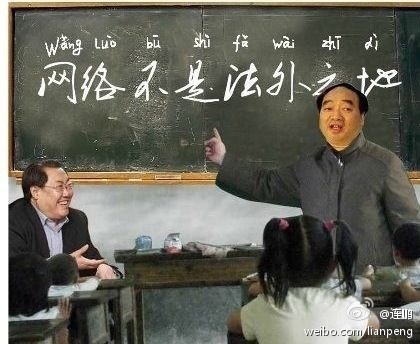 Wǎng luò bū shì fǎ wài zhī dì
网络不是法外之地
@连鹏
weibo.com/lianpeng